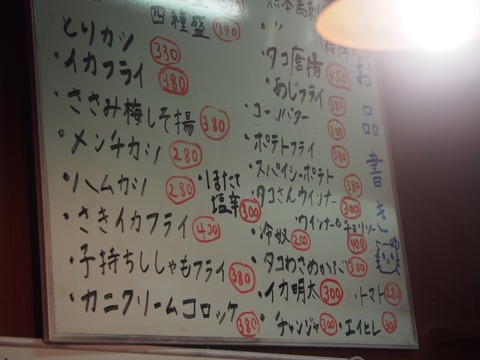 お品書き
四種盛 990
とりカツ 330
イカフライ 380
ささみ梅しそ揚 380
メンチカツ 280
ハムカツ 280
さきイカフライ 400
子持ちししゃもフライ 380
カニクリームコロッケ 380
ほたて塩辛 300
タコ唐揚 450
あじフライ 380
コーンバター 300
ポテトフライ 380
スパイシーポテト 380
タコさんウインナー 300
ウインナー&チョリソー 400
冷奴 250
タコわさめかぶ 300
イカ明太 300
トマト 280
チャンジャ 300
エイヒレ